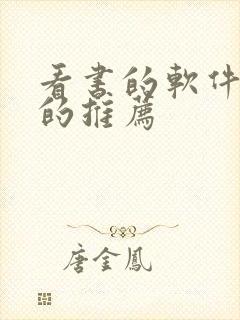 看書的軟件
的推薦
唐金鳳